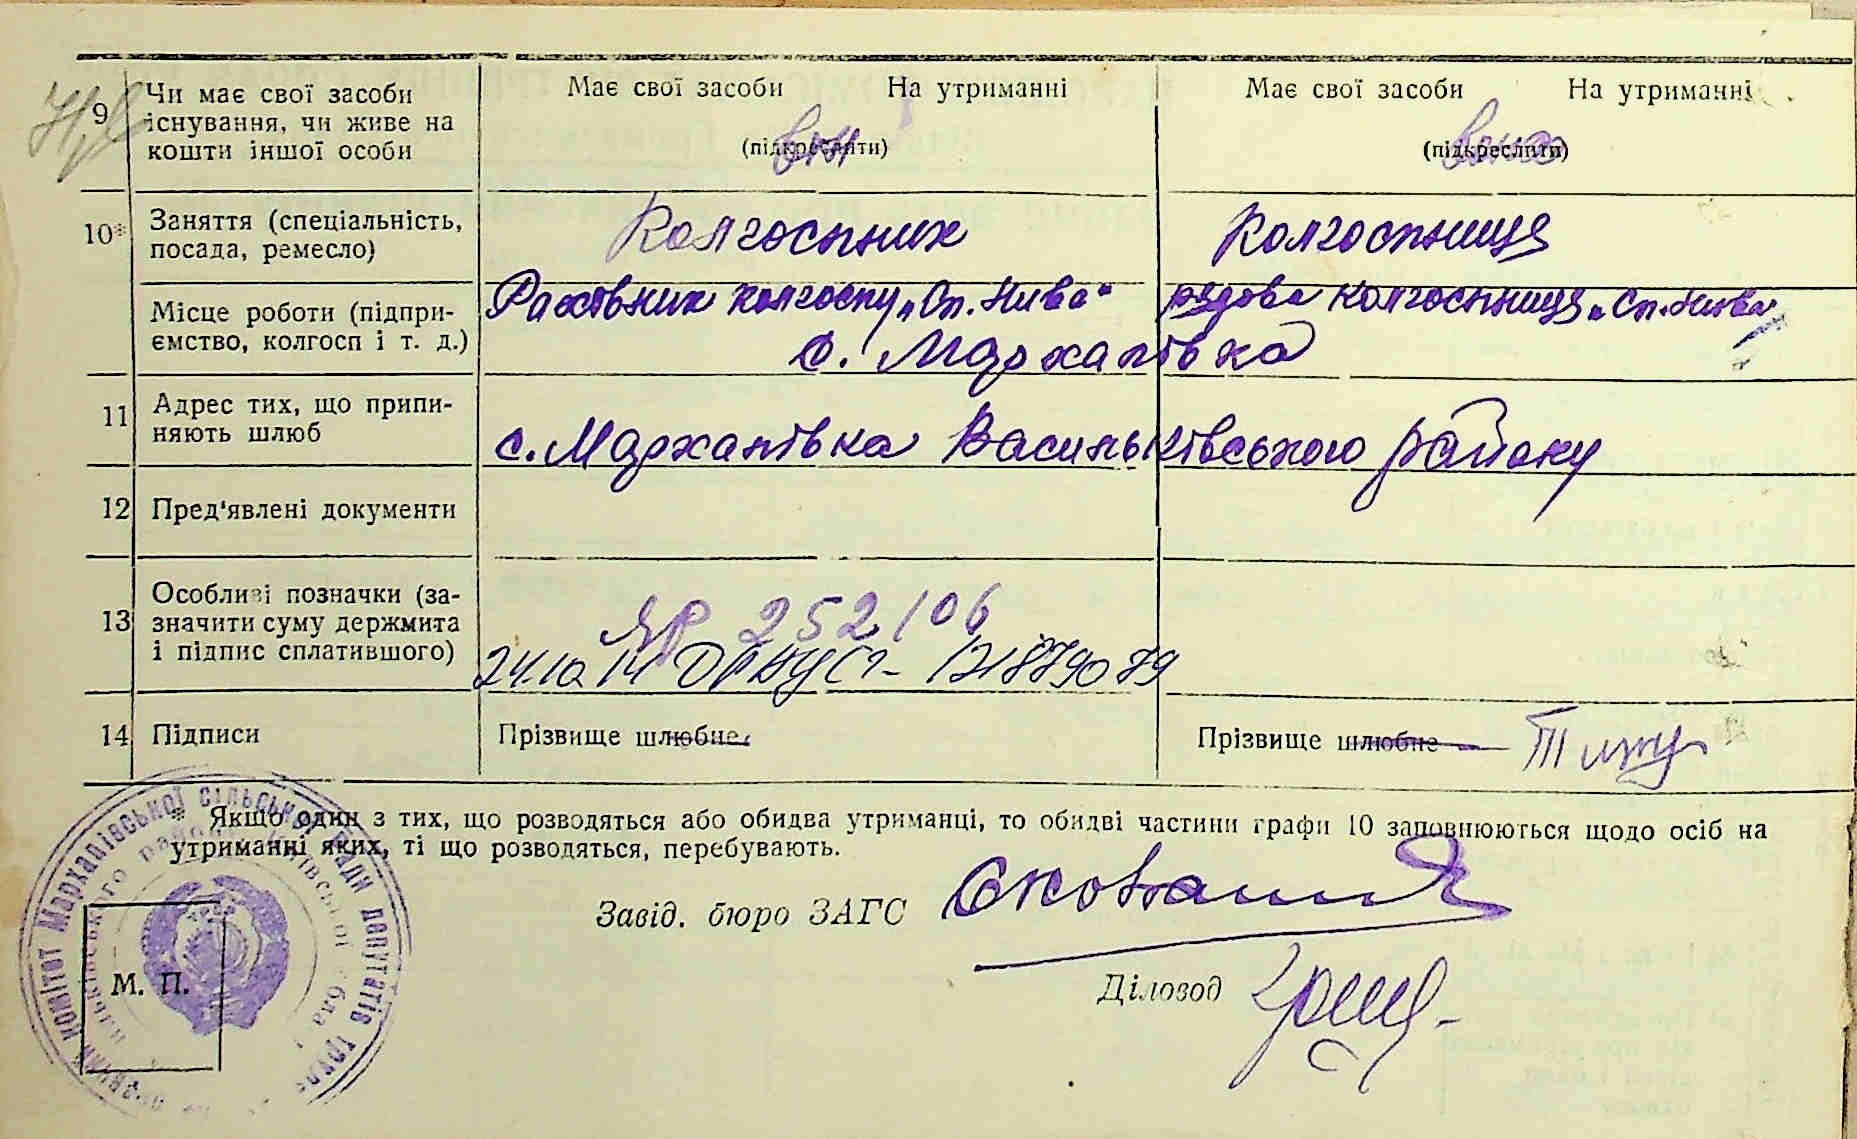 9 Чи має свої засоби існування, чи живе на кошти іншої особи
Має свої засоби На утриманні
(підкреслити)
він
Має свої засоби На утриманні
(підкреслити)
вона
10* Заняття (спеціальність, посада, ремесло)
Колгоспник
Колгоспниця
Місце роботи (підпри-
ємство, колгосп і т. д.)
Рахівник колгоспу „Сп. Нива"
рядова колгоспниця „Сп. Нива"
с. Мархалівка
11 Адрес тих, що припи-
няють шлюб
с. Мархалівка Васильківського району
12 Пред'явлені документи
13 Особливі позначки (за-
значити суму держмита
і підпис сплатившого)
ЯР 252106
14 Підписи
Прізвище шлюбне
Прізвище шлюбне
* Якщо один з тих, що розводяться або обидва утриманці, то обидві частини графи 10 заповнюються щодо осіб на
утриманні яких, ті що розводяться, перебувають.
Завід. бюро ЗАГС
Діловод
М. П.
комітет Мархалівської сільської Ради депутатів